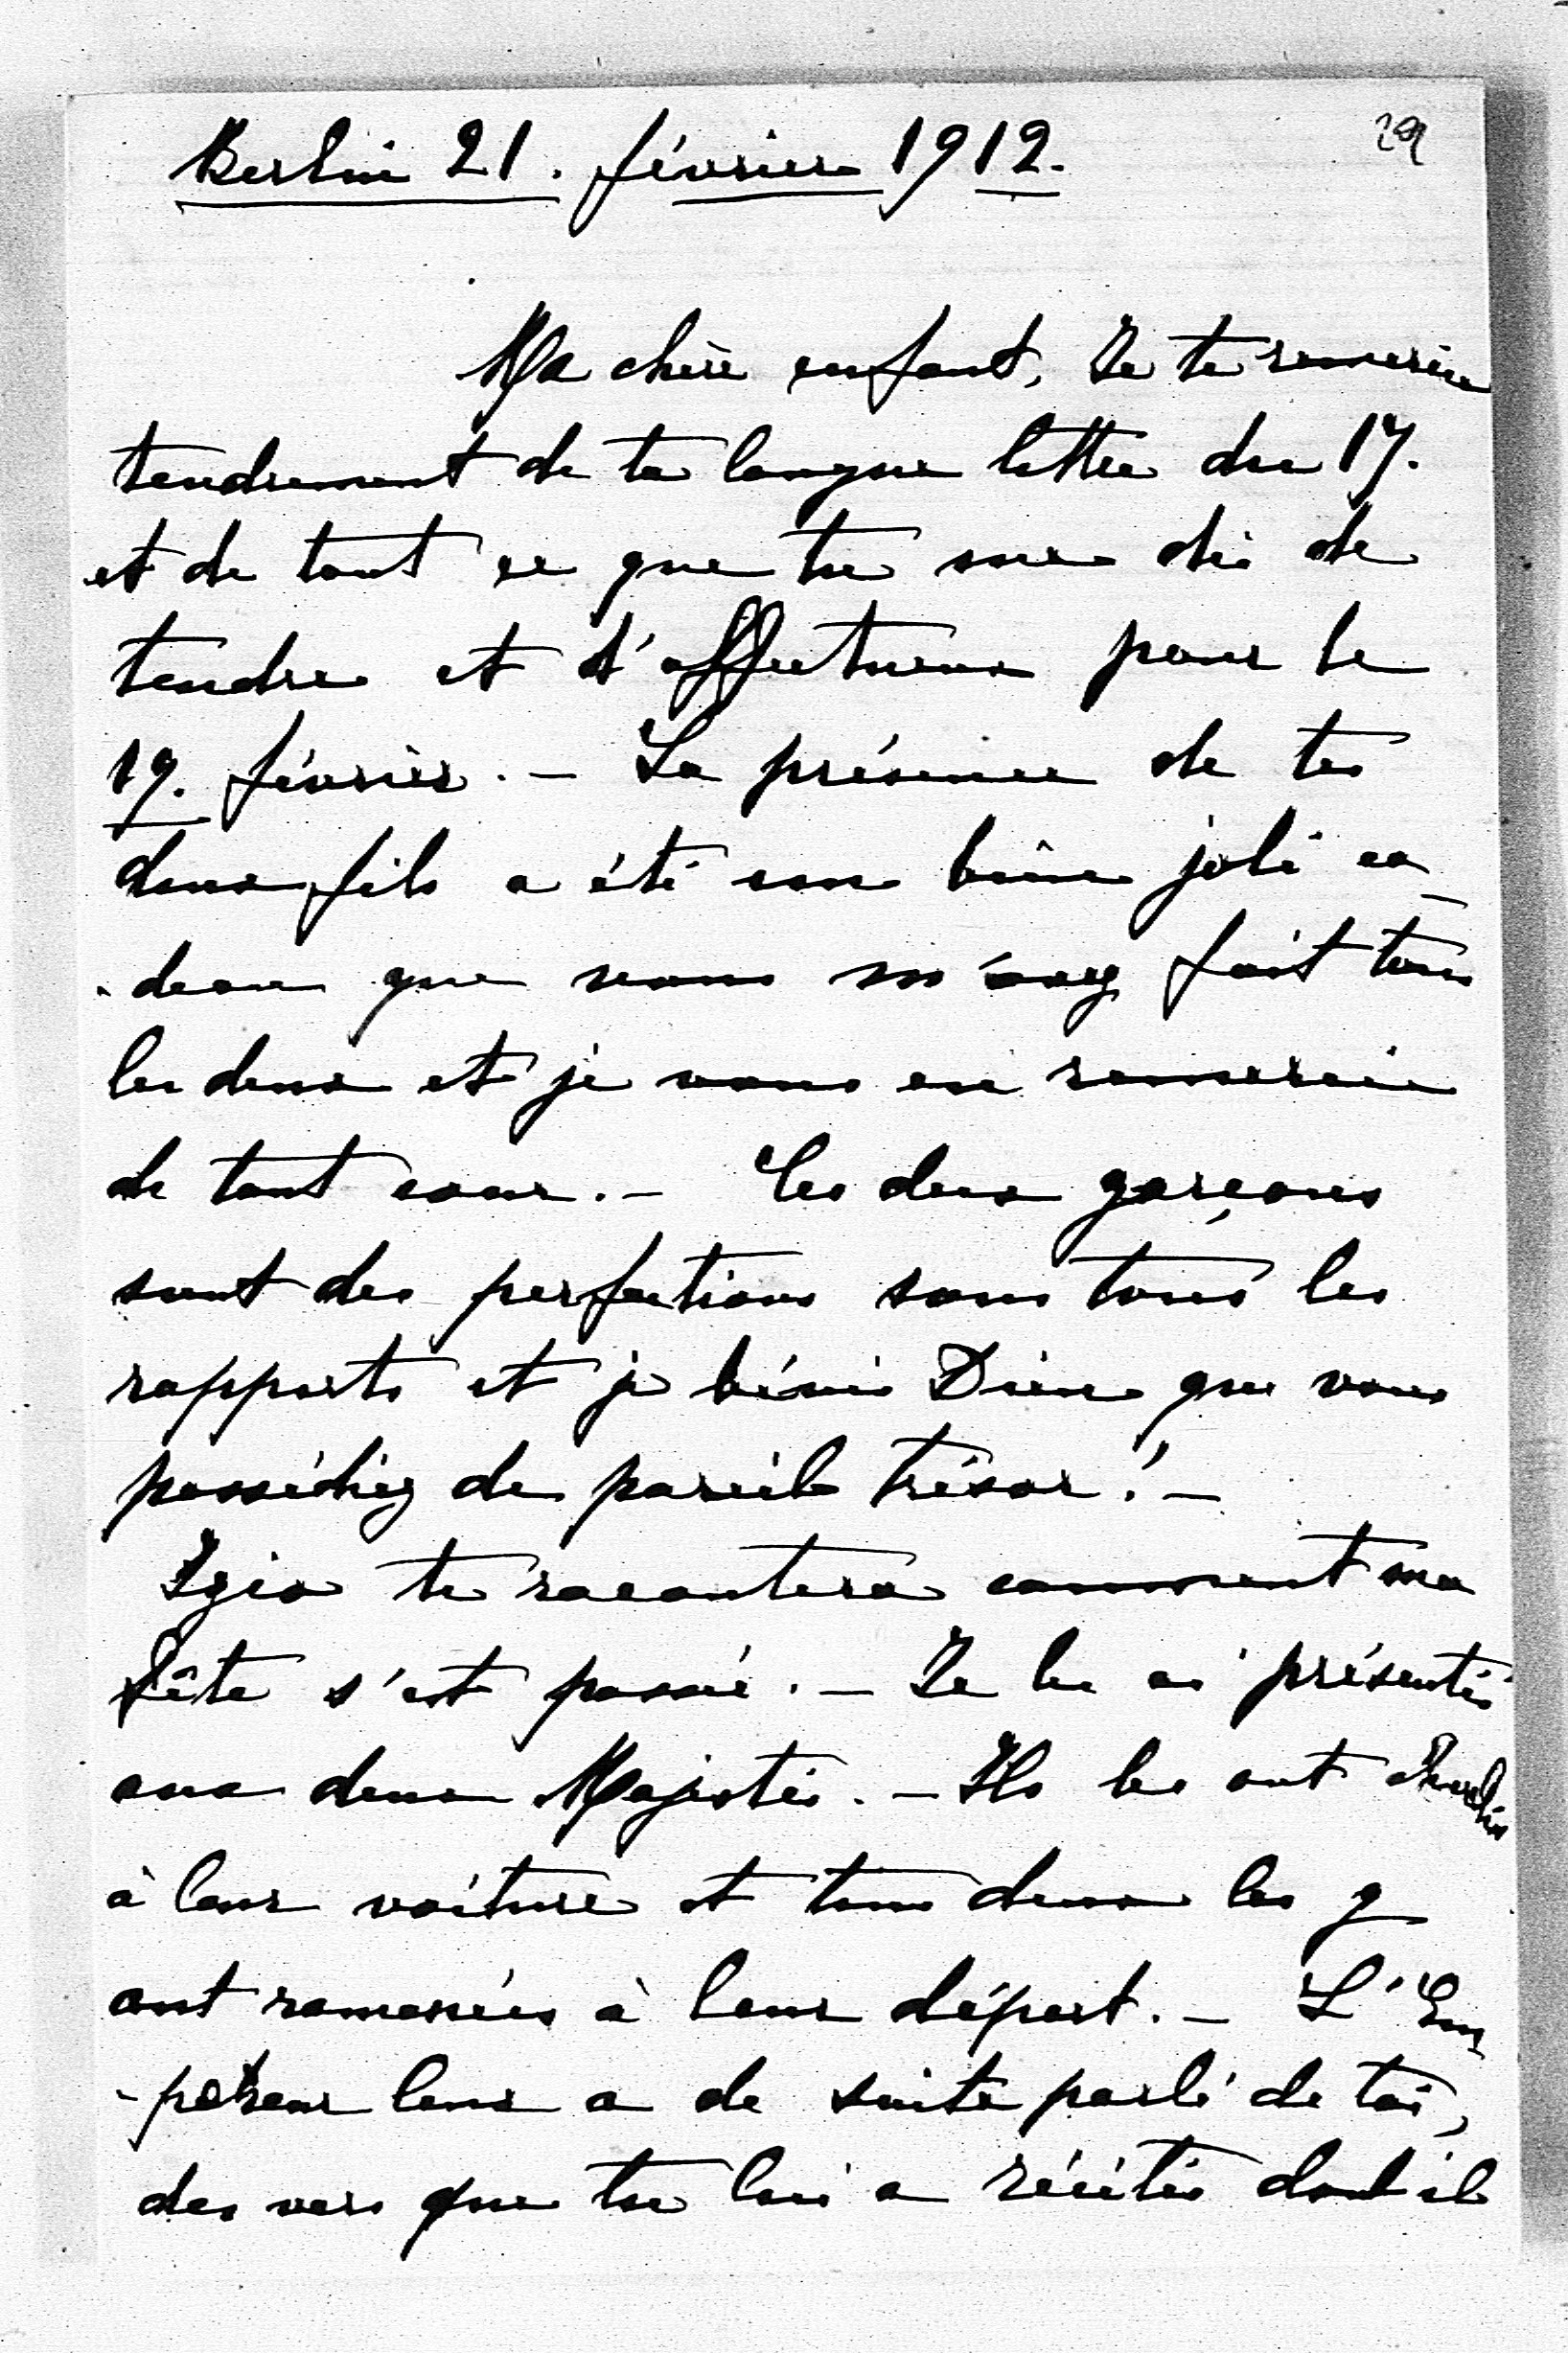 Berlin 21. février 1912.
Ma chère enfant, Je te remercie
tendrement de ta longue lettre du 17.
et de tout ce que tu me dis de
tendre et d'affectueux pour le
19. février. – La présence de tes
deux fils a été un bien joli ca-
-deau que vous m'avez fait tous
les deux et je vous en remercie
de tout cœur. – Ces deux garçons
sont des perfections sous tous les
rapports et je bénis Dieu que vous
possédiez de pareils trésor! –
te racontera comment ma
fête s'est passée. – Je les ai présentés
aux deux Majestés. – Ils les ont
à leur voiture et tous deux les y
ont ramenées à leur départ. – L'Em
-pereur leur a de suite parlé de toi,
des vers que tu lui a récités dont il